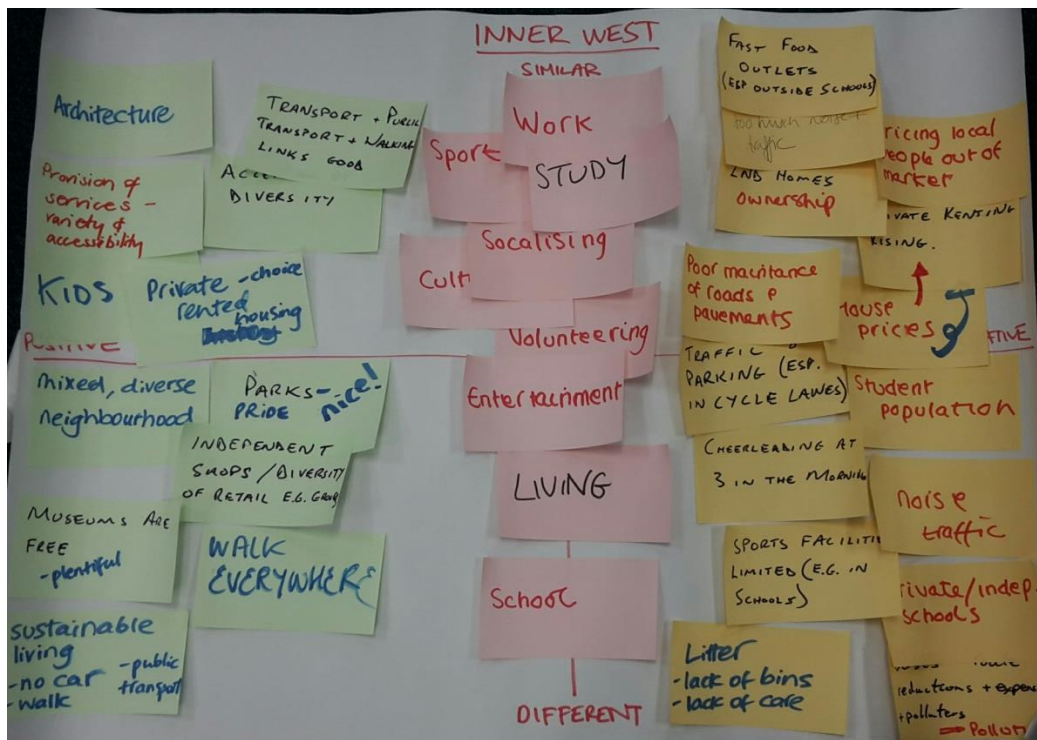 INNER WEST
SIMILAR
Architecture
TRANSPORT + PUBLIC
TRANSPORT + WALKING
LINKS GOOD
Provision of
services -
variety &
accessibility
DIVERSITY
KIDS
Private - choice
rented
housing
POSITIVE
mixed, diverse
neighbourhood
PARKS - nice!
PRIDE
INDEPENDENT
SHOPS / DIVERSITY
OF RETAIL E.G.
MUSEUMS ARE
FREE
- plentiful
WALK
EVERYWHERE
sustainable
living
- no car
- walk
- public
transport
Work
Sport
STUDY
Socalising
Cult
Volunteering
Entertainment
LIVING
School
DIFFERENT
FAST FOOD
OUTLETS
(ESP OUTSIDE SCHOOLS)
too much noise +
traffic
LND HOMES
OWNERSHIP
ricing local
people out of
market
RIVATE RENTING
RISING.
Poor maintance
of roads &
pavements
House
prices
TRAFFIC
PARKING (ESP.
IN CYCLE LANES)
Student
population
CHEERLEADING AT
3 IN THE MORNING
noise
traffic
SPORTS FACILITIE
LIMITED (E.G. IN
SCHOOLS)
rivate/indep.
schools
Litter
- lack of bins
- lack of care
reductions +
+ polluters